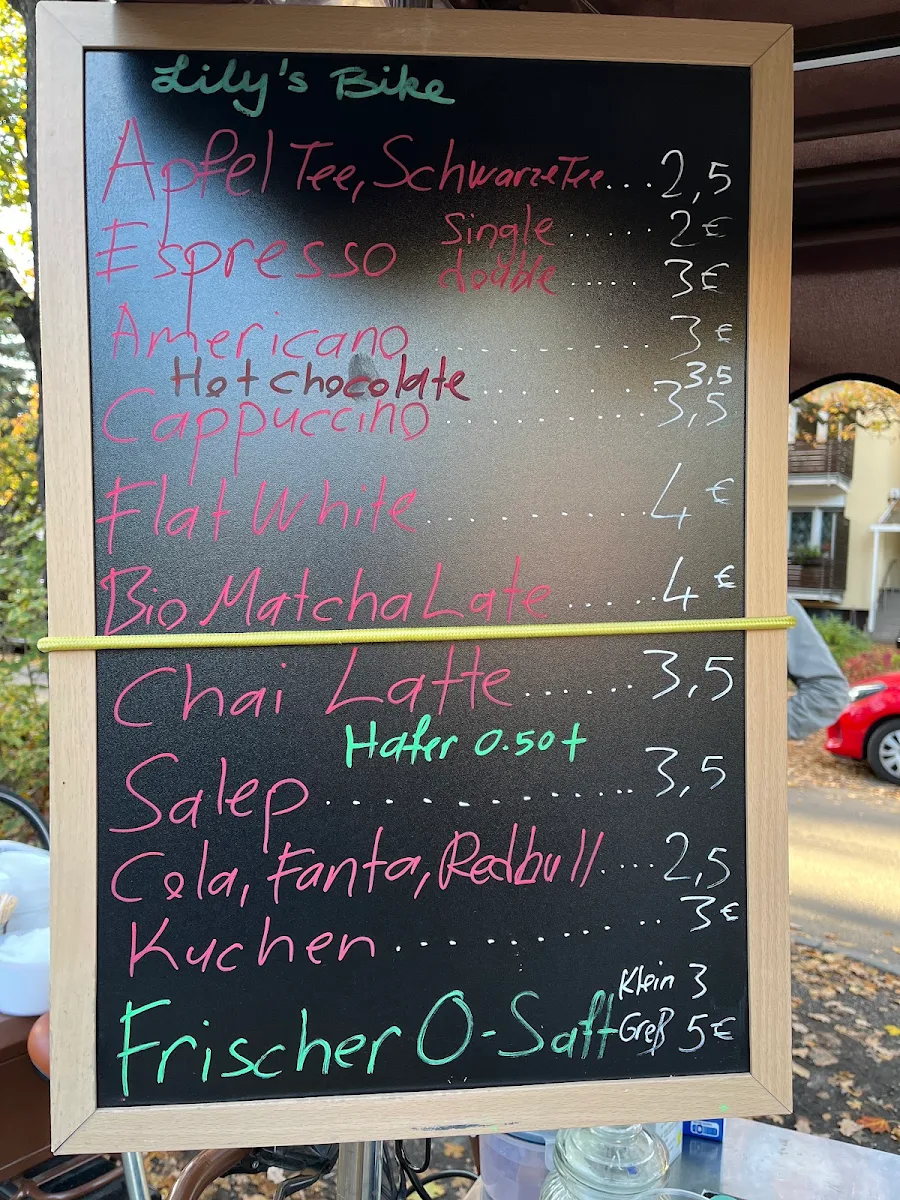 Lily's Bike
Apfel Tee, Schwarze Tee...2,5
Espresso Single......2€
double......3€
Americano..........3€
Hot chocolate..........3,5
Cappuccino..........3,5
Flat White..........4€
Bio Matcha Late.....4€
Chai Latte.......3,5
Hafer 0.50+
Salep..........3,5
Cola, Fanta, Redbull....2,5
Kuchen..........3€
Frischer O-Saft Klein 3
Groß 5€